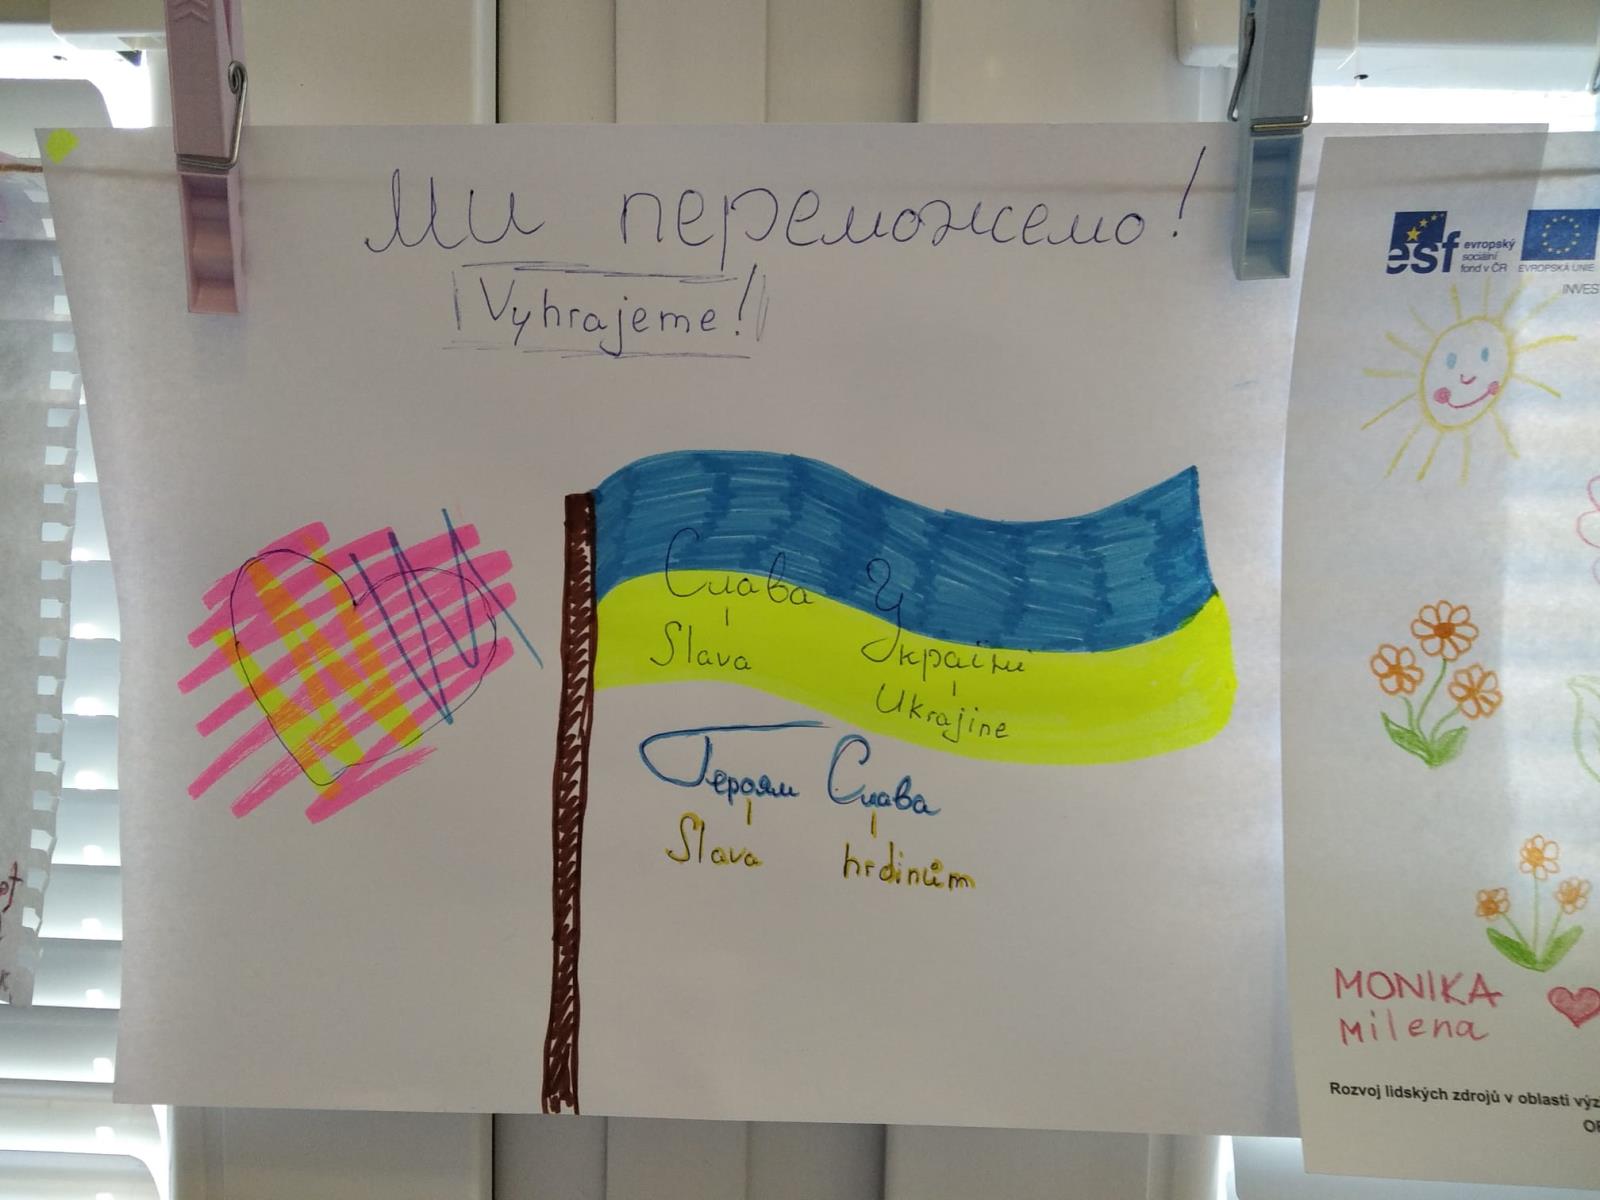 Ми переможемо!
Vyhrajeme!
Слава У
Україні
Slava
Ukrajine
Героям Слава
Slava hrdinům
esf evropský
sociální
fond v ČR
EVROPSKÁ UNIE
INVES
MONIKA
Milena
Rozvoj lidských zdrojů v oblasti výz
OP